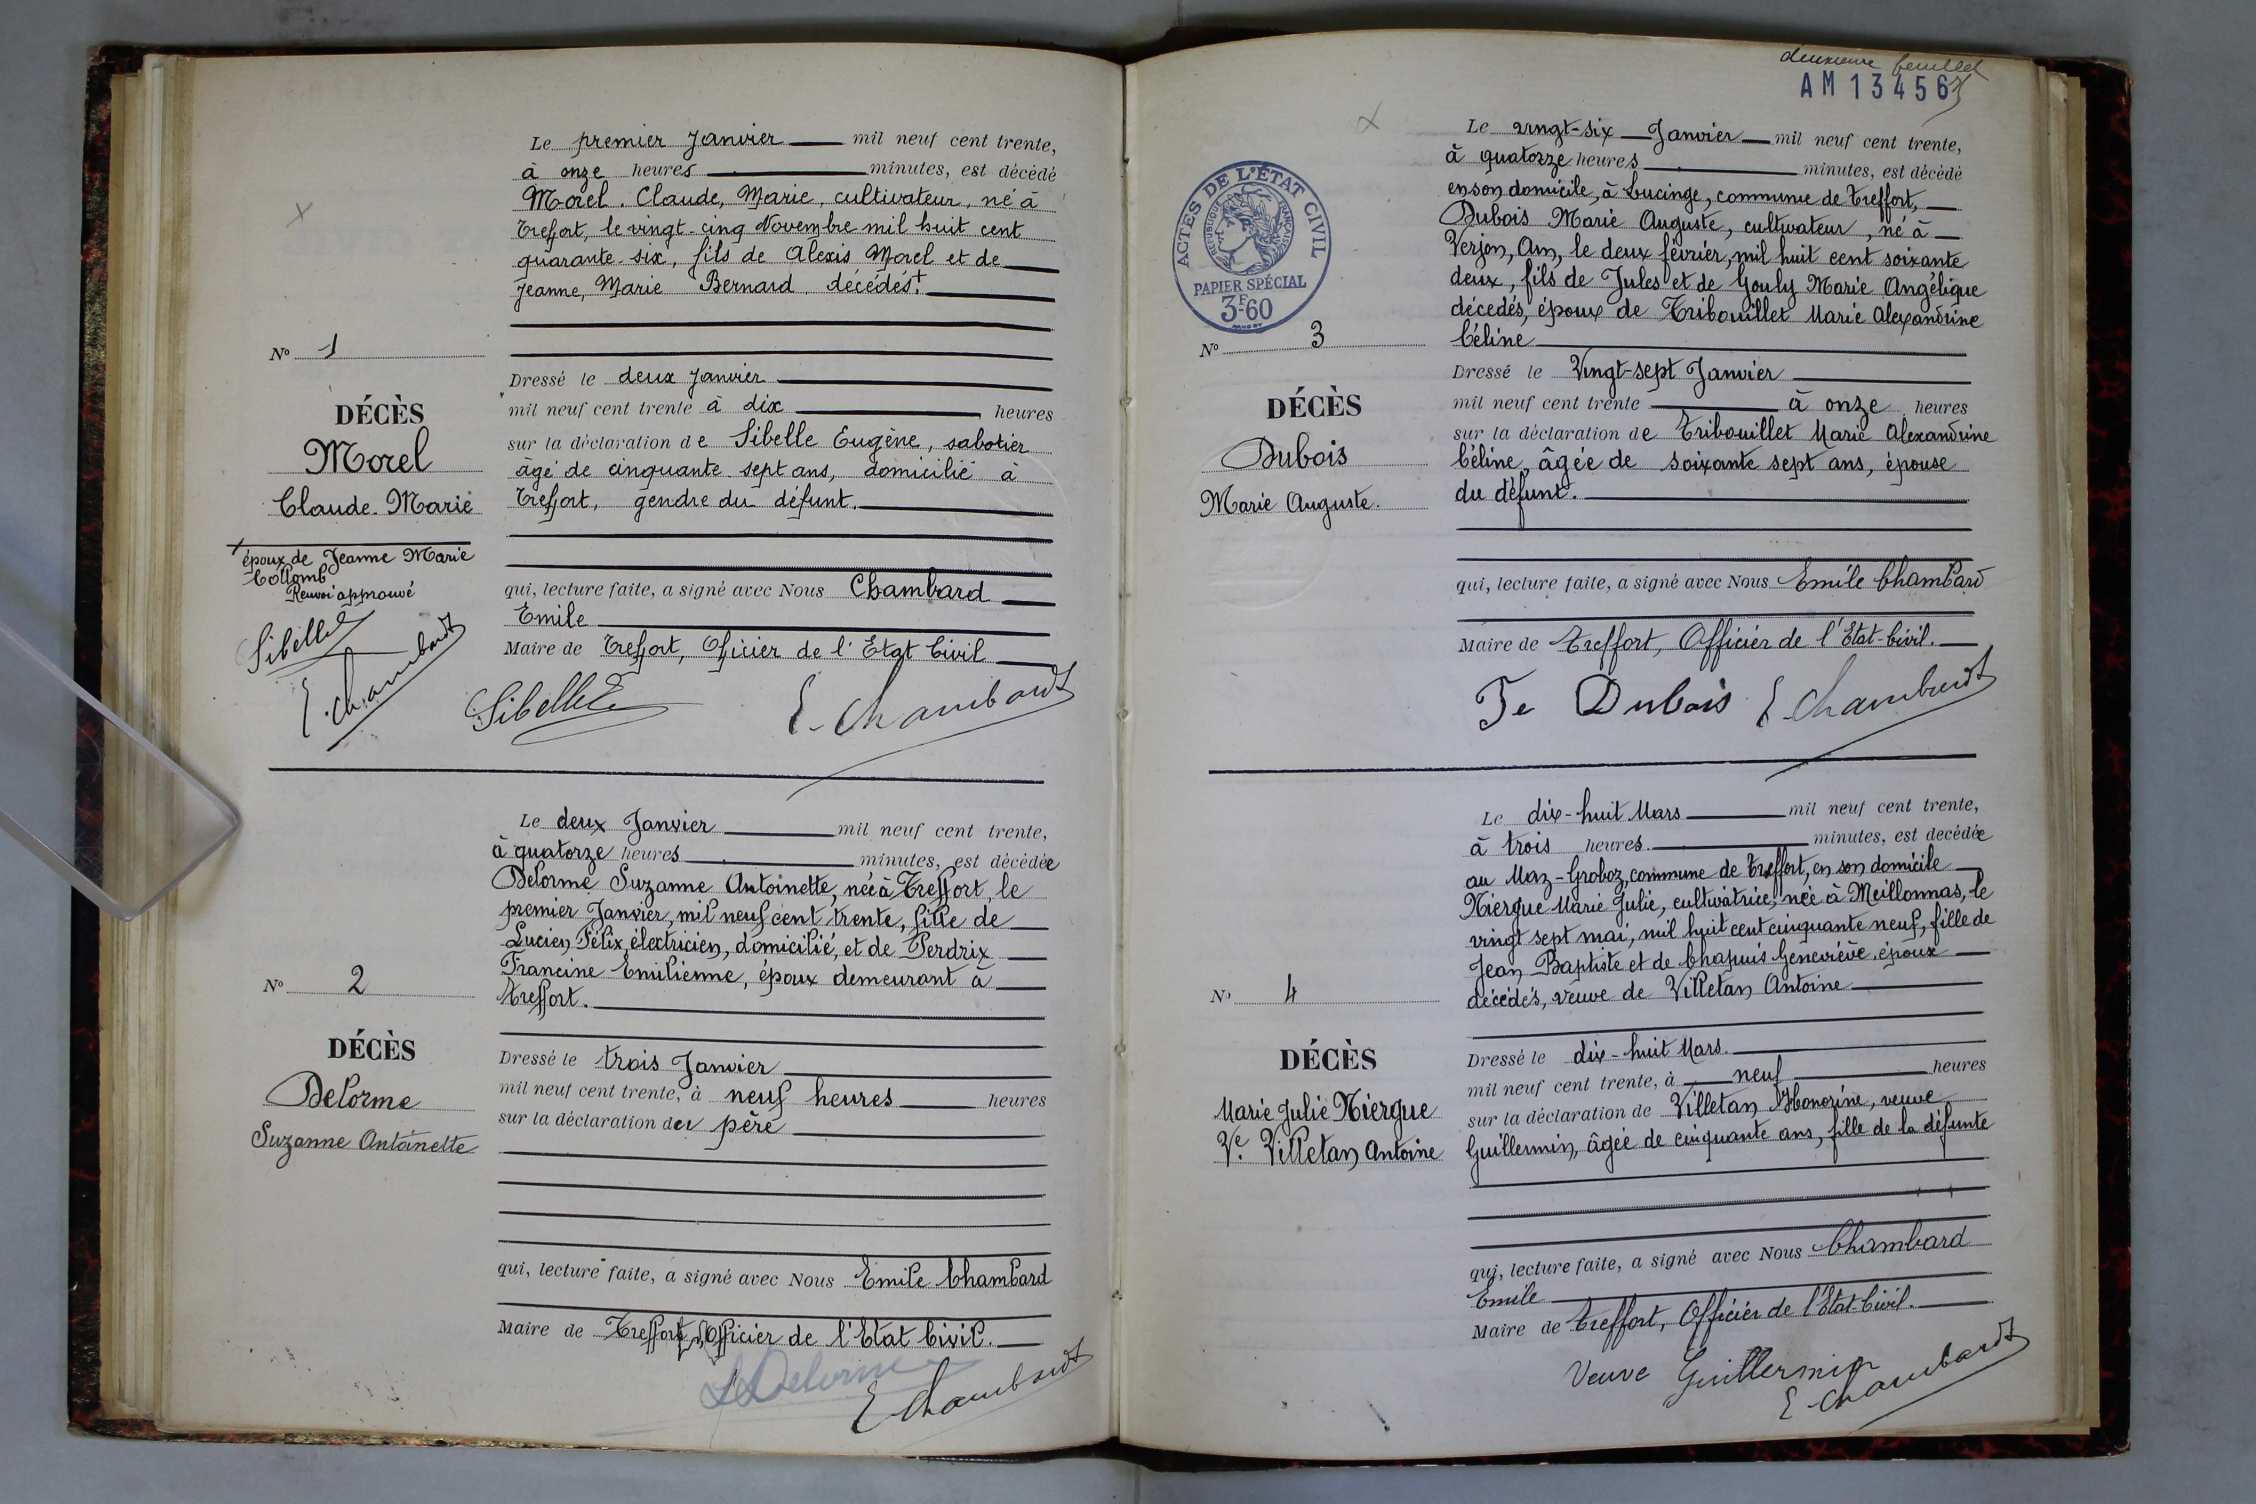 Le premier Janvier mil neuf cent trente,
à onze heures minutes, est décédé
Morel. Claude, Marie, cultivateur, né à
Treffort, le vingt-cinq Novembre mil huit cent
quarante-six, fils de Alexis Morel et de
Jeanne, Marie Bernard décédés.+
N° 1
DÉCÈS
Morel
Claude. Marie
+ époux de Jeanne Marie
Collomb
Renvoi approuvé
Sibelle
E. Chambard
Dressé le deux Janvier
mil neuf cent trente à dix heures
sur la déclaration de Sibelle Eugène, sabotier
âgé de cinquante sept ans, domicilié à
Treffort, gendre du défunt.
qui, lecture faite, a signé avec Nous Chambard
Emile
Maire de Treffort, Officier de l'Etat Civil
Sibelle E. Chambard
Le deux Janvier mil neuf cent trente,
à quatorze heures minutes, est décédée
Delorme Suzanne Antoinette, née à Treffort, le
premier Janvier, mil neuf cent trente, fille de
Lucien Félix, électricien, domicilié, et de Perdrix
Francine Emilienne, époux demeurant à
Treffort.
N° 2
DÉCÈS
Delorme
Suzanne Antoinette
Dressé le trois Janvier
mil neuf cent trente, à neuf heures heures
sur la déclaration du père
qui, lecture faite, a signé avec Nous Emile Chambard
Maire de Treffort, Officier de l'Etat Civil.
L Delorme
E Chambard
deuxième feuillet
AM 13456
Le vingt-six Janvier mil neuf cent trente,
à quatorze heures minutes, est décédé
en son domicile, à Lucinge, commune de Treffort,
Dubois Marie Auguste, cultivateur, né à
Verjon, Ain, le deux février, mil huit cent soixante
deux, fils de Jules et de Gouly Marie Angélique
décédés, époux de Tribouillet Marie Alexandrine
Céline
ACTES DE L'ÉTAT CIVIL
RÉPUBLIQUE FRANÇAISE
PAPIER SPÉCIAL
3F60
N° 3
DÉCÈS
Dubois
Marie Auguste.
Dressé le Vingt-sept Janvier
mil neuf cent trente à onze heures
sur la déclaration de Tribouillet Marie Alexandrine
Céline, âgée de soixante sept ans, épouse
du défunt.
qui, lecture faite, a signé avec Nous Emile Chambard
Maire de Treffort, Officier de l'Etat-Civil.
Te Dubois E. Chambard
Le dix-huit Mars mil neuf cent trente,
à trois heures. minutes, est decédée
au Maz-Groboz, commune de Treffort, en son domicile
Niergue Marie Julie, cultivatrice, née à Meillonnas, le
vingt sept mai, mil huit cent cinquante neuf, fille de
Jean Baptiste et de Chapuis Geneviève, époux
décédés, veuve de Villetan Antoine
N° 4
DÉCÈS
Marie Julie Niergue
Ve. Villetan Antoine
Dressé le dix-huit Mars.
mil neuf cent trente, à neuf heures
sur la déclaration de Villetan Honorine, veuve
Guillermin, âgée de cinquante ans, fille de la défunte
qui, lecture faite, a signé avec Nous Chambard
Emile
Maire de Treffort, Officier de l'Etat-Civil.
Veuve Guillermin
E Chambard